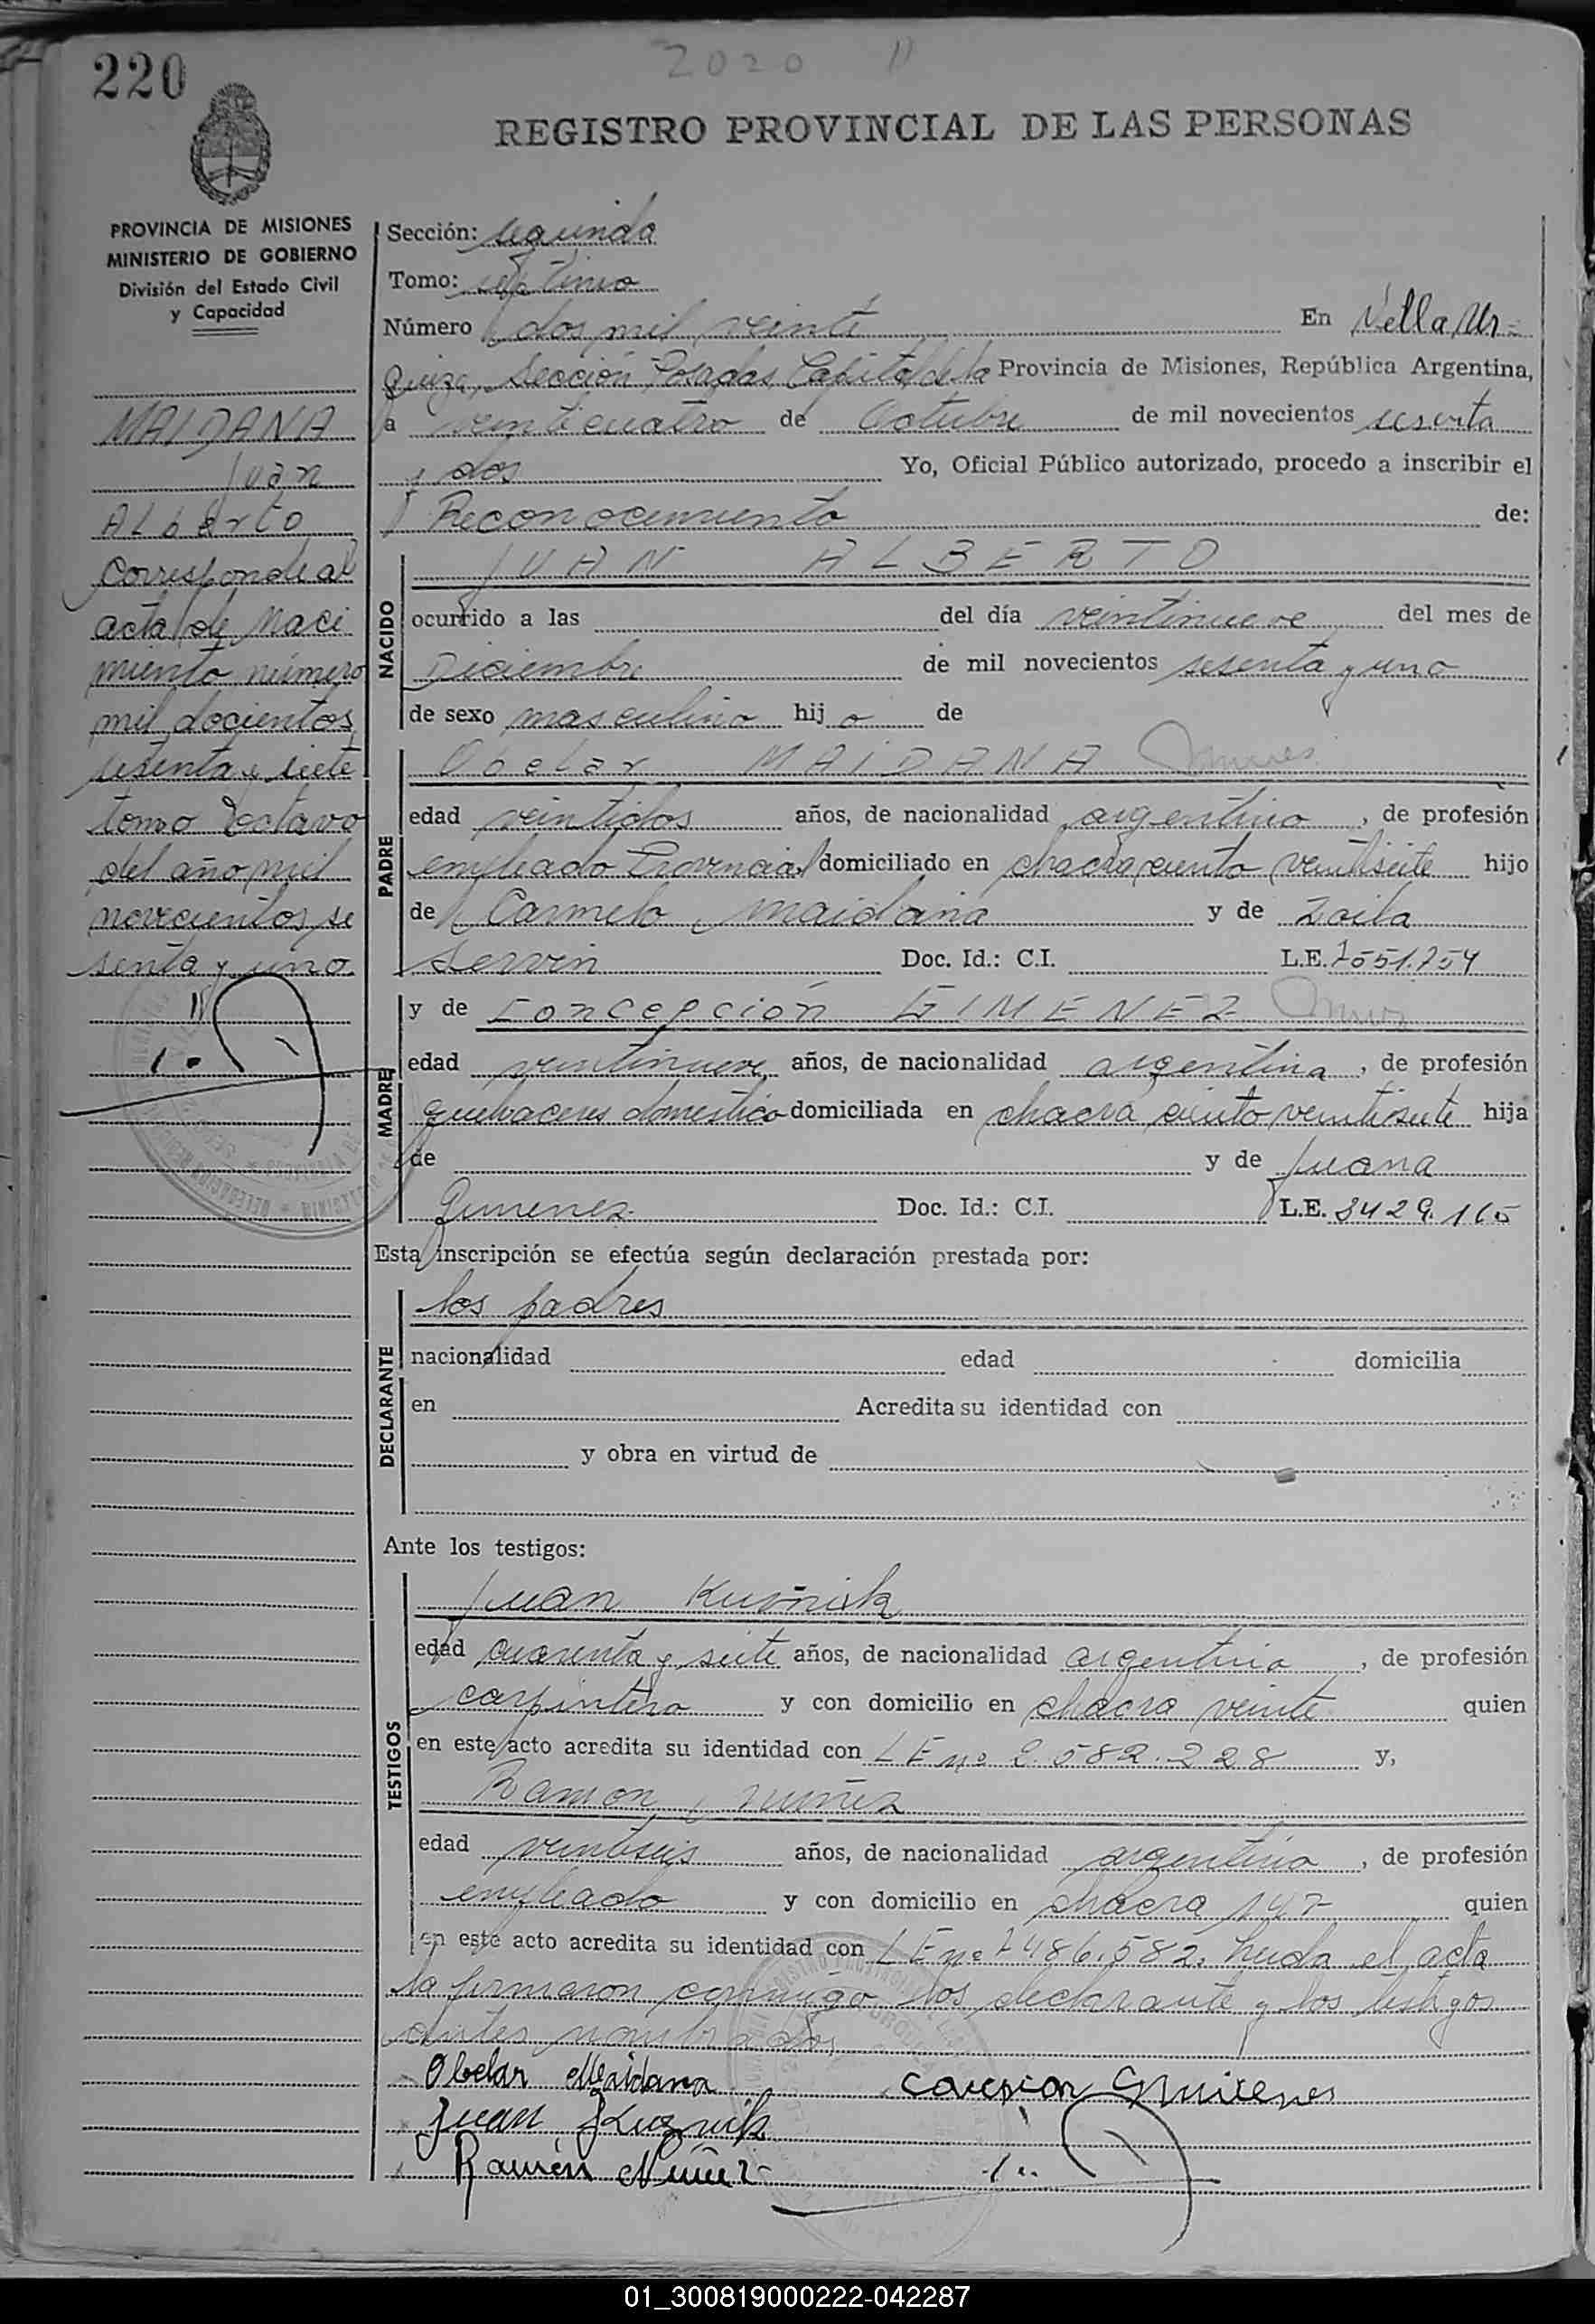 2020
220
REGISTRO PROVINCIAL DE LAS PERSONAS
PROVINCIA DE MISIONES
MINISTERIO DE GOBIERNO
División del Estado Civil
y Capacidad
MAIDANA
Juan
Alberto
Corresponde al
acta de Naci
miento número
mil docientos
sesenta y siete
tomo Octavo
del año mil
novecientos se
senta y uno
Sección: segunda
Tomo: septimo
Número dos mil veinte En Villa Ur=
quiza, Sección Posadas Capital de la Provincia de Misiones, República Argentina,
a veinticuatro de Octubre de mil novecientos sesenta
y dos Yo, Oficial Público autorizado, procedo a inscribir el
Reconocimiento de:
NACIDO
JUAN ALBERTO
ocurrido a las del día veintinueve del mes de
Diciembre de mil novecientos sesenta y uno
de sexo masculino hij o de
PADRE
Obelar MAIDANA
edad veintidos años, de nacionalidad argentino, de profesión
empleado Provincial domiciliado en chacra ciento veintisiete hijo
de Carmelo Maidana y de Zoila
Servin Doc. Id.: C.I. L.E. 7551.754
MADRE
y de Concepción GIMENEZ
edad veintinueve años, de nacionalidad argentina, de profesión
quehaceres domestico domiciliada en chacra ciento veintisiete hija
de y de Juana
Gimenez Doc. Id.: C.I. L.E. 3429.165
Esta inscripción se efectúa según declaración prestada por:
DECLARANTE
los padres
nacionalidad edad domicilia
en Acredita su identidad con
y obra en virtud de
Ante los testigos:
TESTIGOS
Juan Kusnik
edad cuarenta y siete años, de nacionalidad argentino, de profesión
carpintero y con domicilio en chacra veinte quien
en este acto acredita su identidad con LE nº 2.582.228 y,
Ramon Nuñez
edad veintiseis años, de nacionalidad argentino, de profesión
empleado y con domicilio en chacra 147 quien
en este acto acredita su identidad con LE nº 7486.582. Leida el acta
la firmaron conmigo los declarante y los testigos
antes nombrados
Obelar Maidana
Juan Kuznik
Ramón Nuñez
01_300819000222-042287